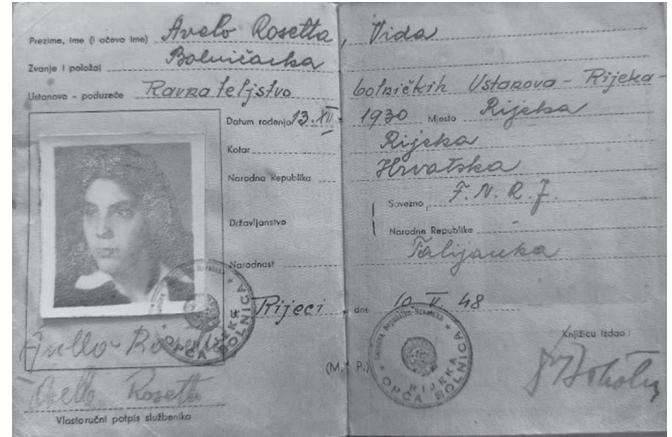 Prezime, ime (i očevo ime) Avelo Rosetta, Vida
Zvanje i položaj Bolničarka
Ustanova - poduzeće Ravnateljstvo bolničkih Ustanova - Rijeka -
Datum rođenja 13. XII. 1930 Mjesto Rijeka
Kotar Rijeka
Narodna Republika Hrvatska
Državljanstvo Savezno F. N. R. J.
Narodne Republike
Narodnost Talijanka
Rijeci, dne 10. V. 48
(M. P.)
OPĆA BOLNICA RIJEKA
OPĆA BOLNICA RIJEKA
Knjižicu izdao:
Avello Rosetta
Vlastoručni potpis službenika